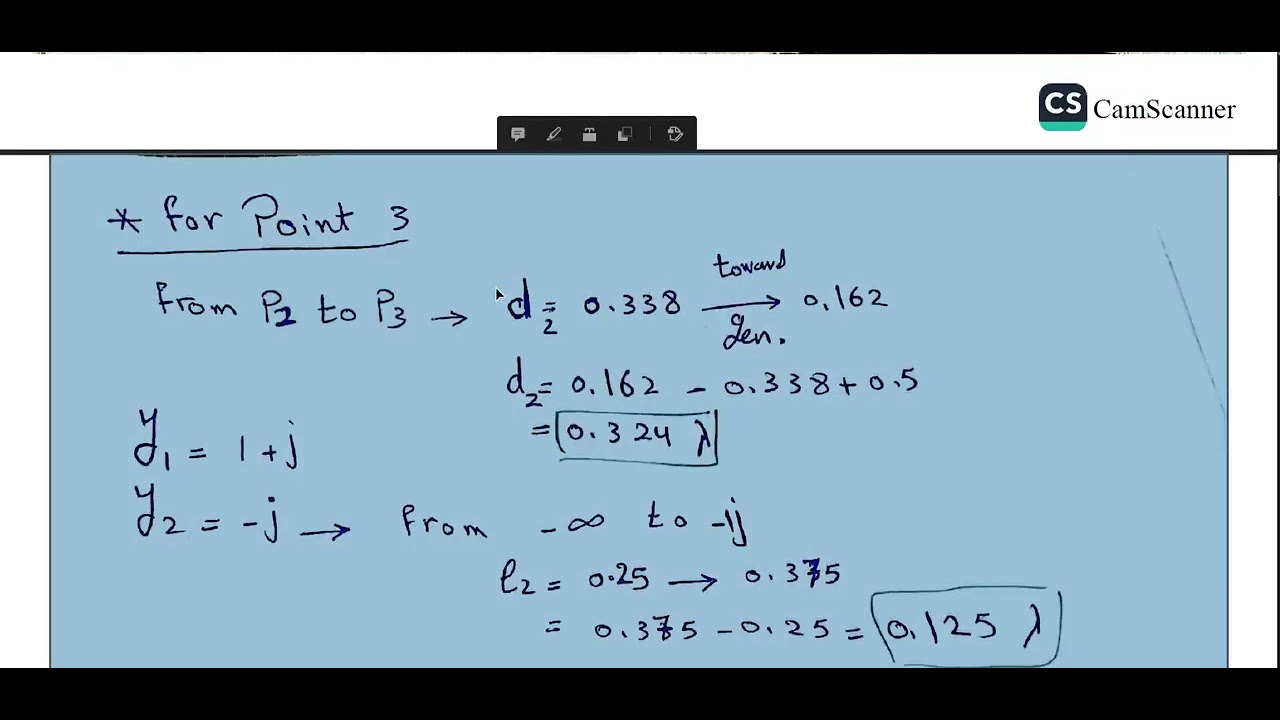 CS CamScanner
* for Point 3
toward
From P2 to P3 → d2 = 0.338 → 0.162
gen.
d2 = 0.162 - 0.338 + 0.5
= 0.324 λ
y1 = 1 + j
y2 = -j → from -∞ to -1j
l2 = 0.25 → 0.375
= 0.375 - 0.25 = 0.125 λ